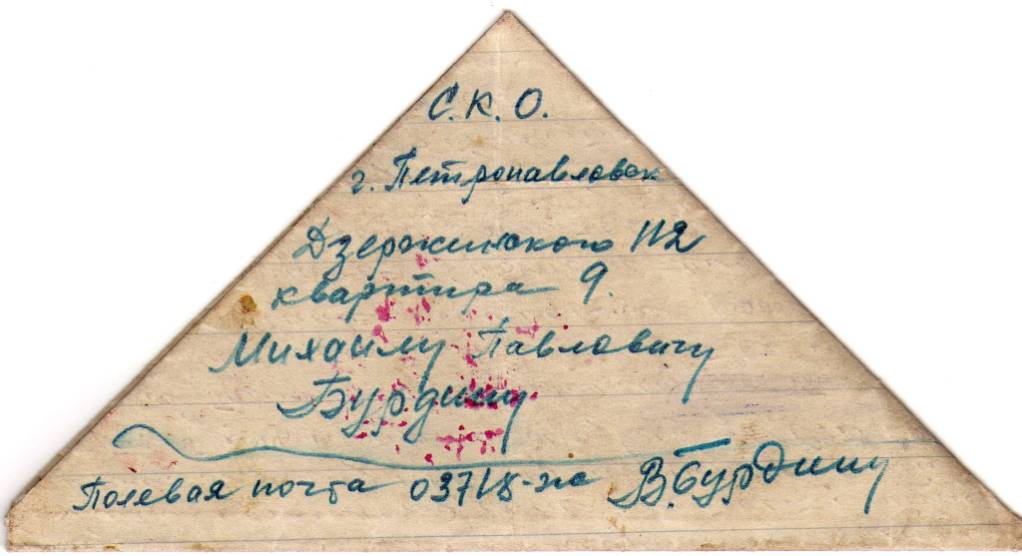 С.К.О.
г. Петропавловск
Дзержинского 112
квартира 9.
Михаилу Павловичу
Бурдину
Полевая почта 03718-ж В. Бурдину